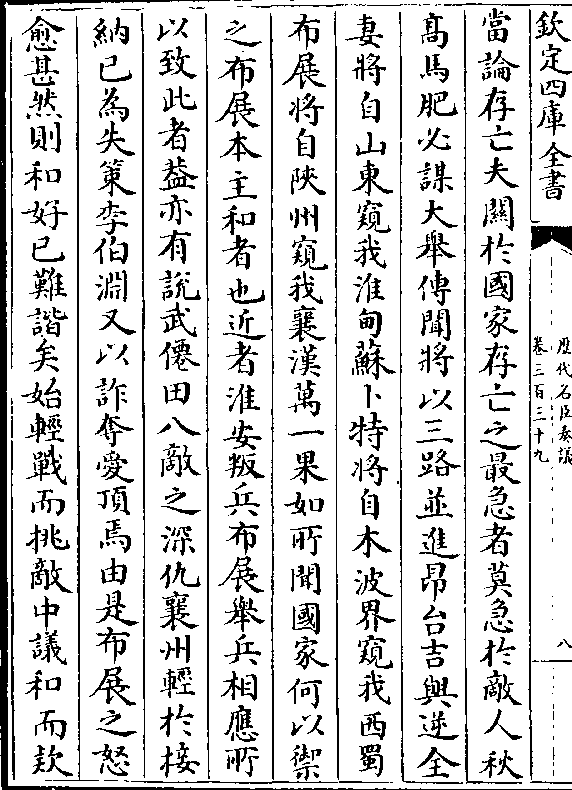 欽定四庫全書
歴代名臣奏議
卷三百三十九
八
當論存亡夫關於國家存亡之最急者莫急於敵人秋
髙馬肥必謀大舉傳聞將以三路並進昂台吉與逆全
妻將自山東窺我淮甸蘇卜特將自木波界窺我西蜀
布展將自陜州窺我襄漢萬一果如所聞國家何以禦
之布展本主和者也近者淮安叛兵布展舉兵相應所
以致此者葢亦有說武僊田八敵之深仇襄州輕於接
納已為失策李伯淵又以詐奪愛頂焉由是布展之怒
愈甚然則和好已難諧矣始輕戰而挑敵中議和而欵